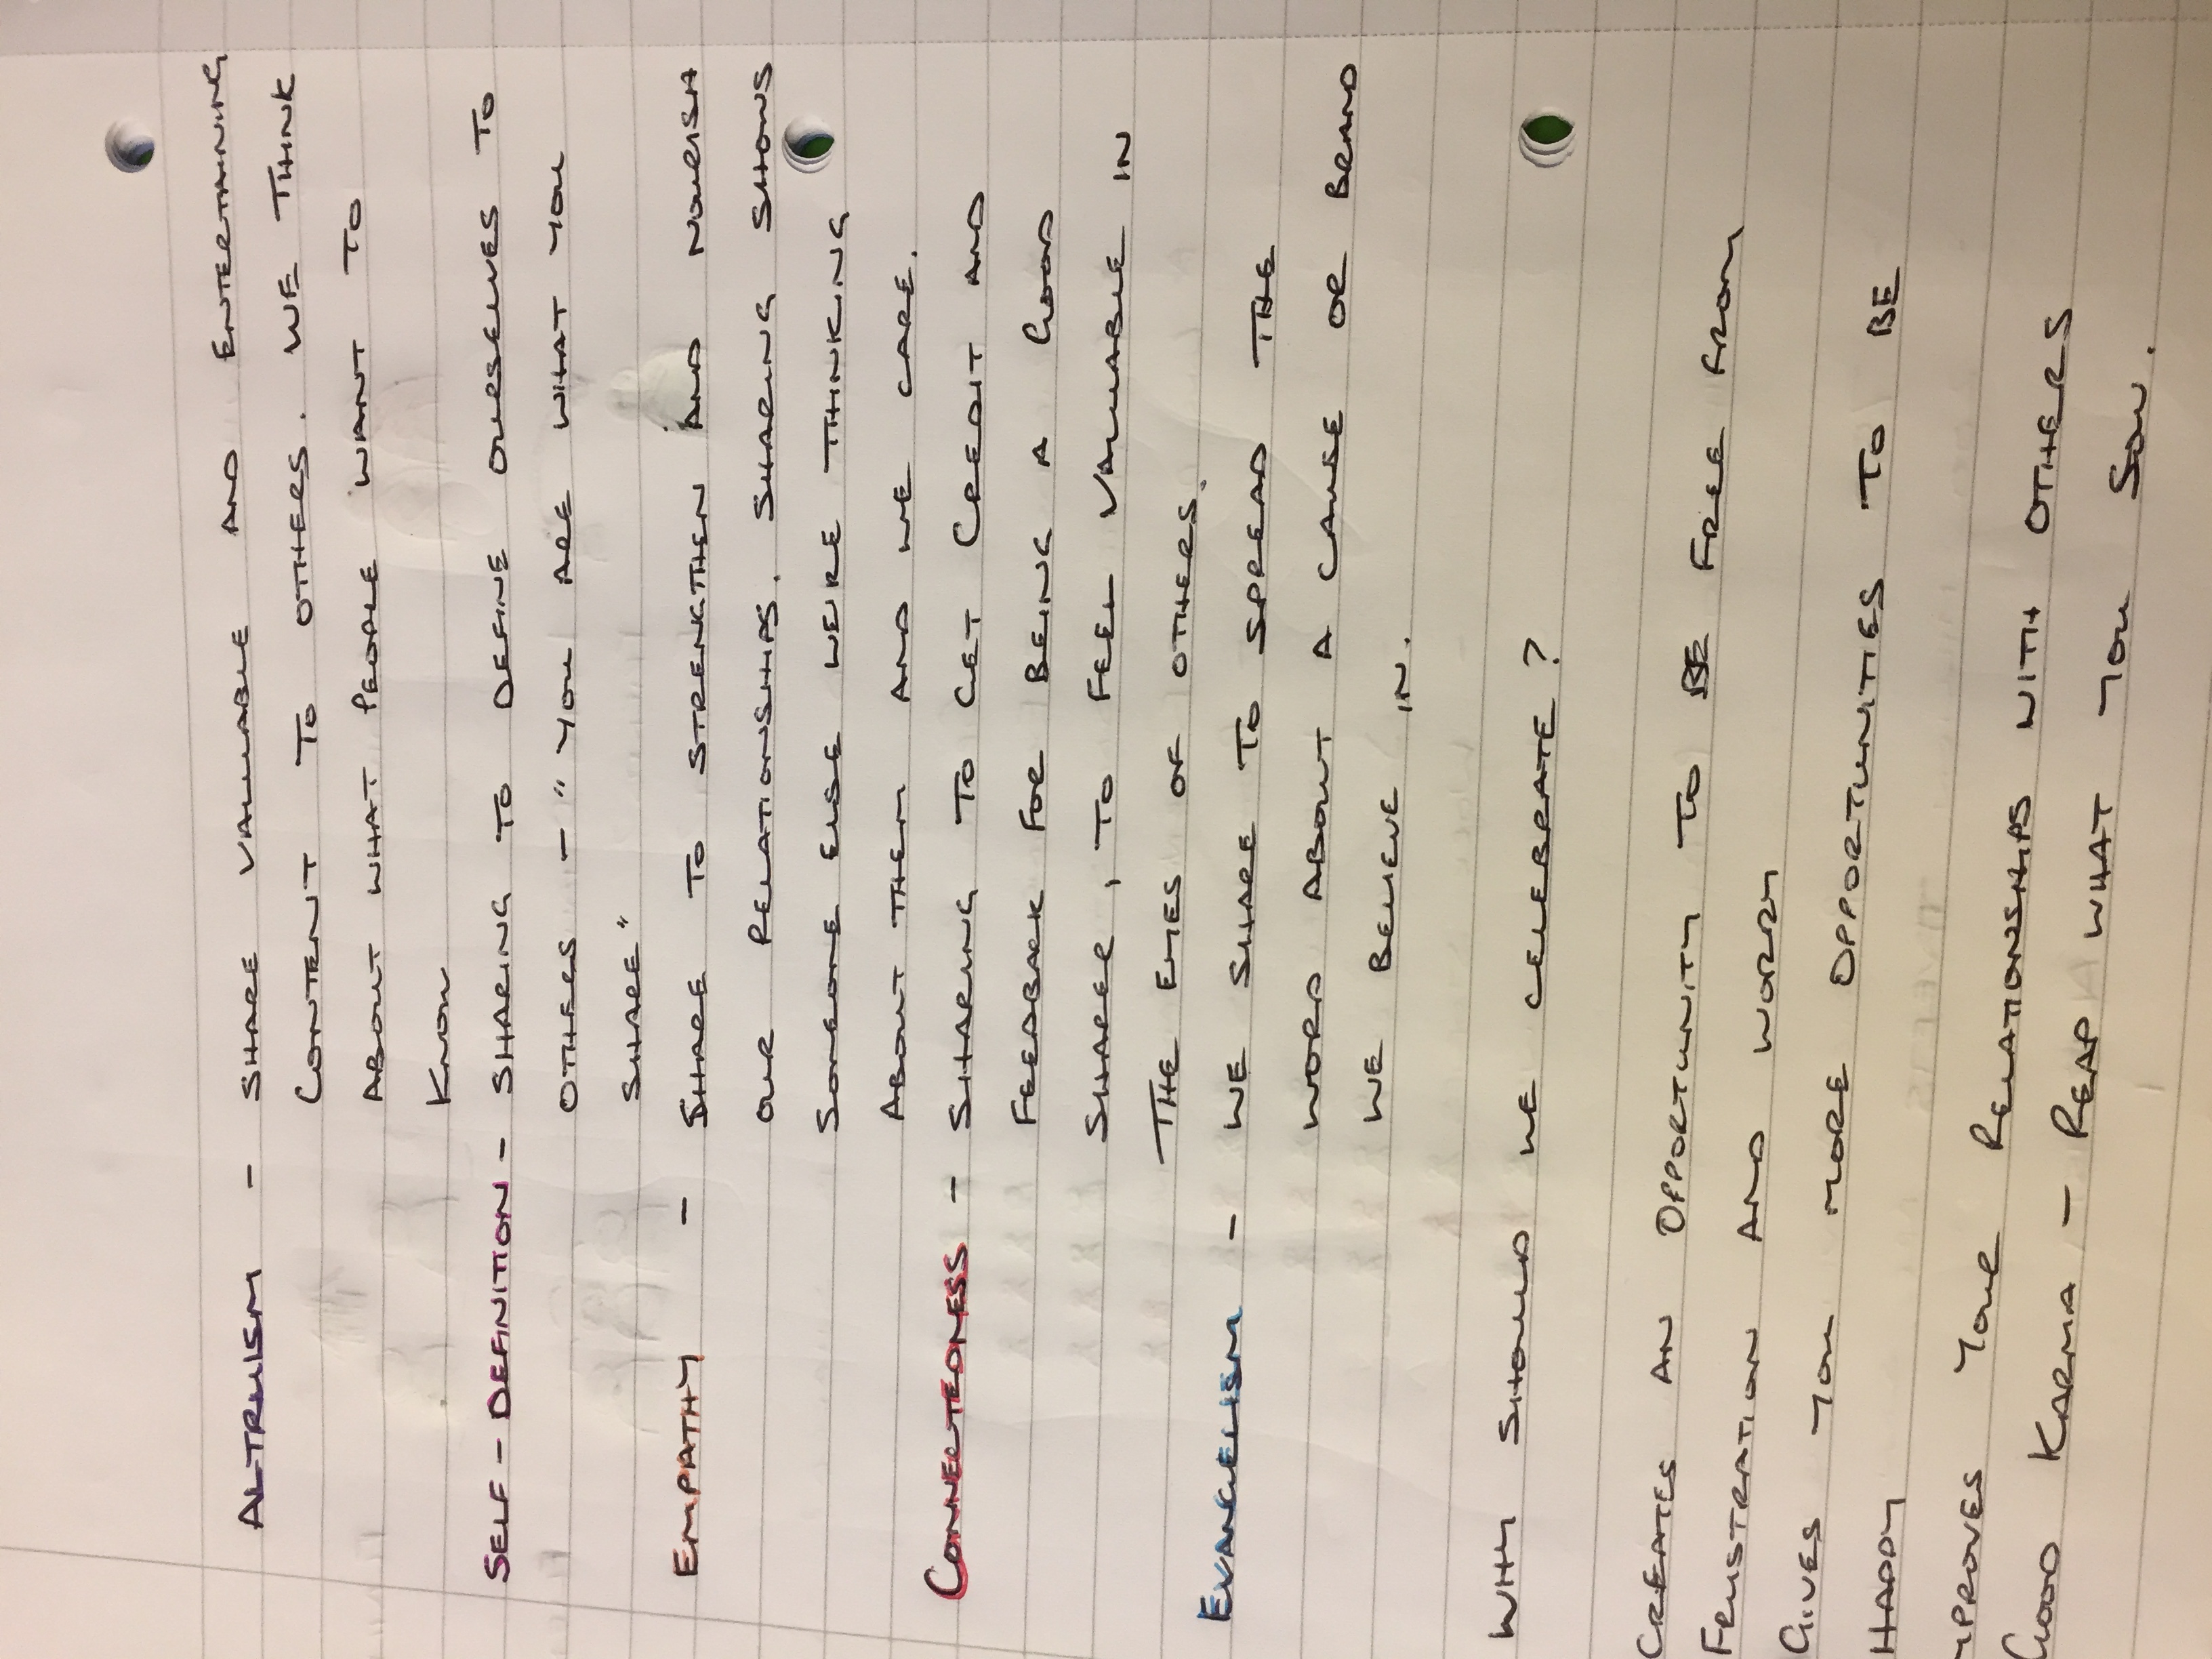 ALTRUISM - SHARE VALUABLE AND ENTERTAINING
CONTENT TO OTHERS. WE THINK
ABOUT WHAT PEOPLE WANT TO
KNOW
SELF - DEFINITION - SHARING TO DEFINE OURSELVES TO
OTHERS - "YOU ARE WHAT YOU
SHARE"
EMPATHY - SHARE TO STRENGTHEN AND NOURISH
OUR RELATIONSHIPS. SHARING SHOWS
SOMEONE ELSE WE'RE THINKING
ABOUT THEM AND WE CARE.
CONNECTEDNESS - SHARING TO GET CREDIT AND
FEEDBACK FOR BEING A GOOD
SHARER, TO FEEL VALUABLE IN
THE EYES OF OTHERS.
EVANGELISM - WE SHARE TO SPREAD THE
WORD ABOUT A CAUSE OR BRAND
WE BELIEVE IN.
WHY SHOULD WE CELEBRATE?
CREATES AN OPPORTUNITY TO BE FREE FROM
FRUSTRATION AND WORRY
GIVES YOU MORE OPPORTUNITIES TO BE
HAPPY
MPROVES YOUR RELATIONSHIPS WITH OTHERS
GOOD KARMA - REAP WHAT YOU SOW.